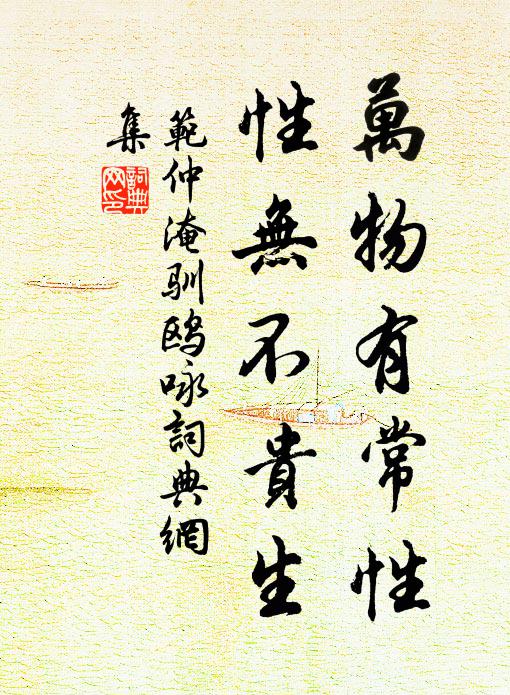 萬物有常性
性無不貴生
範仲淹馴鸥咏詞典網
集
詞典
网印